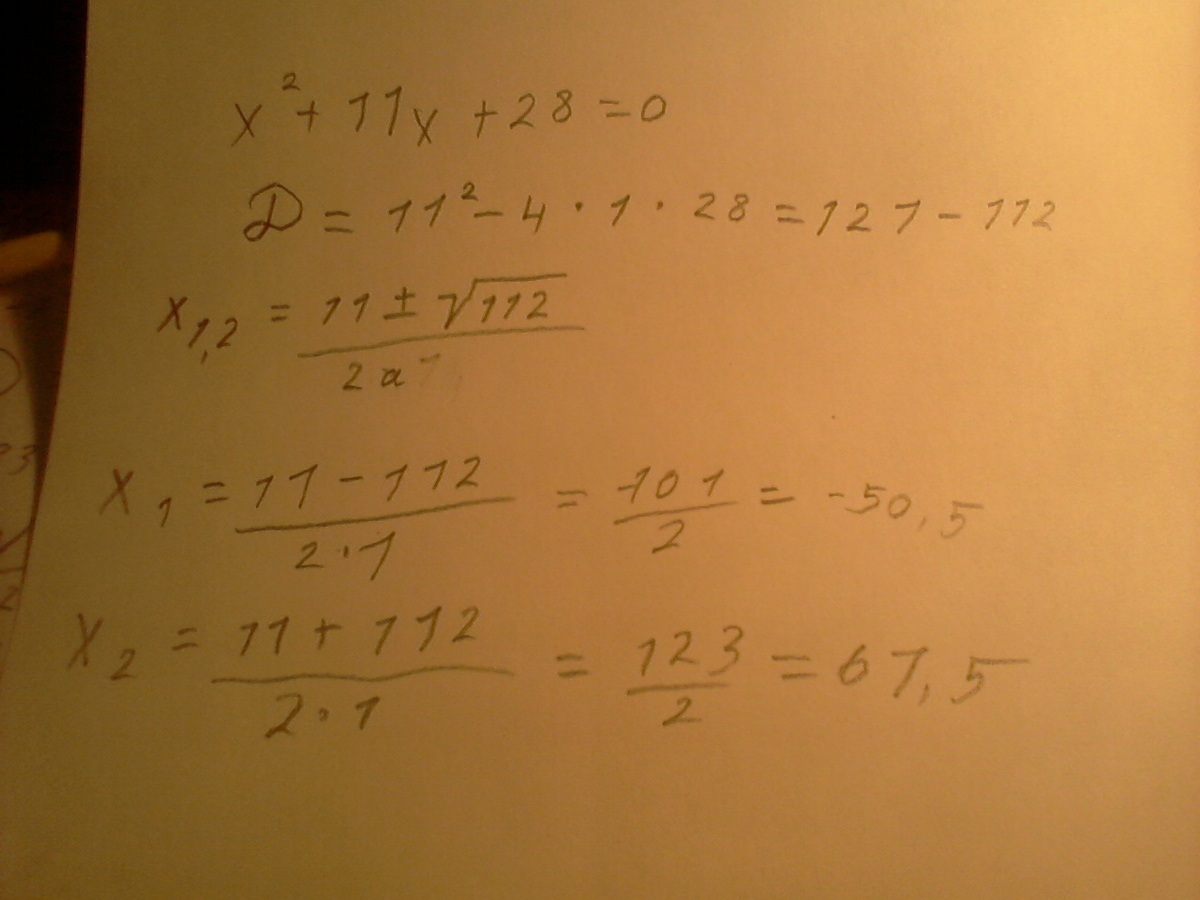 x² + 11x + 28 = 0
D = 11² - 4 · 1 · 28 = 121 - 112
x₁,₂ = (11 ± √112) / 2a
x₁ = (11 - 112) / (2·1) = -101 / 2 = -50,5
x₂ = (11 + 112) / (2·1) = 123 / 2 = 67,5